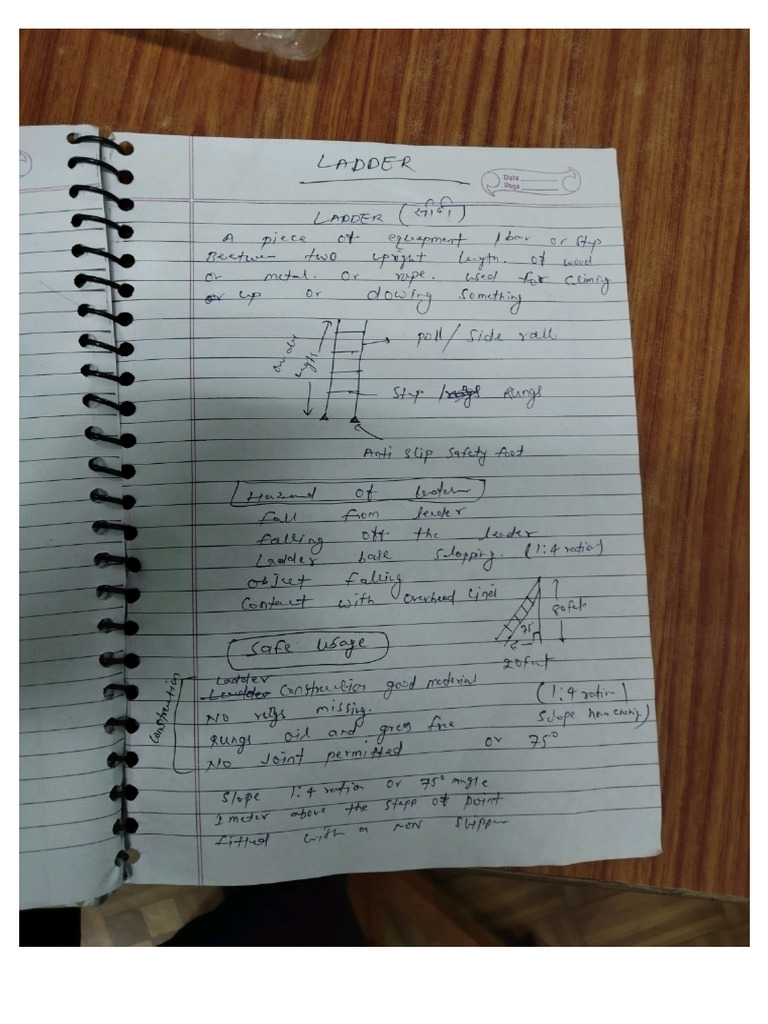 LADDER
Date
Page
LADDER (सीढी)
A piece of equepment / bar or step
Beetwen two upright length. of wood
or metal. or rope. used for climing
or up or dowing something
poll / side rall
step / rungs
Anti slip safety foot
Hazard of leader
fall from leader
falling off the leader
Ladder base slopping. (1:4 ration)
object falling
Contact with overhead lines
80 feet
75
20 feet
Safe usage
Construction
Ladder
construction good material
(1:4 ration)
NO rugs missing.
Rungs oil and free
slope
NO Joint permitted or 75°
Slope 1:4 ration or 75° angle
1 meter above the stepp of point
fitted with a non slipper